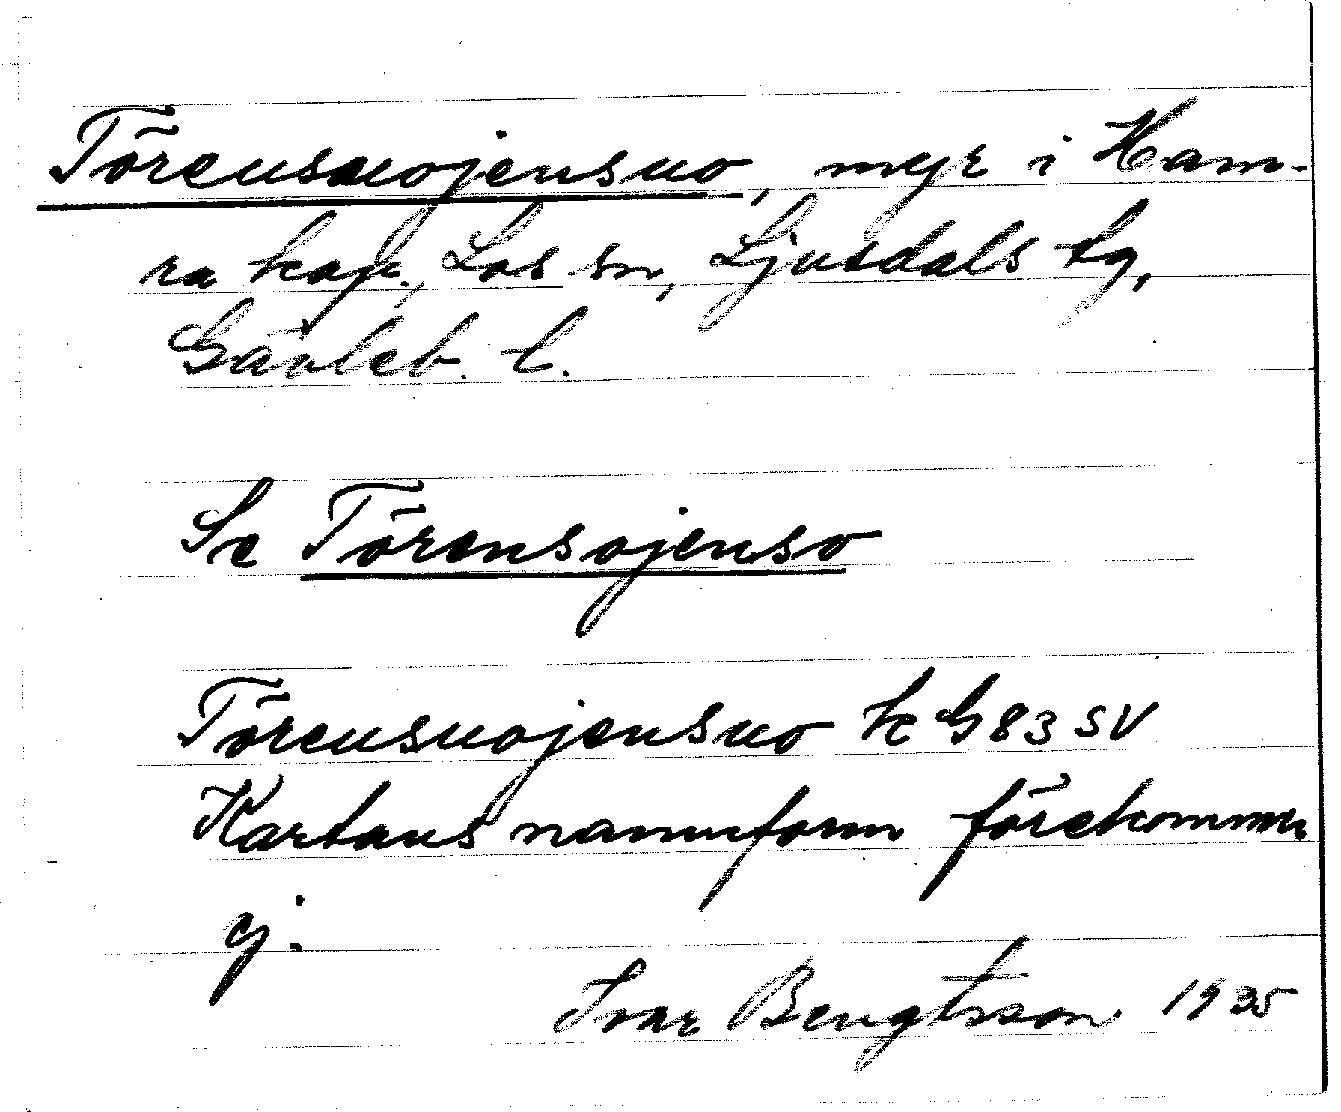 Törensuojensuo, myr i Ham-
ra kap., Los sn, Ljusdals tg,
Gävleb. l.
Se Törensojenso
Törensuojensuo k G83 SV
Kartans namnform förekommer
ej.
Ivar Bengtsson 1935